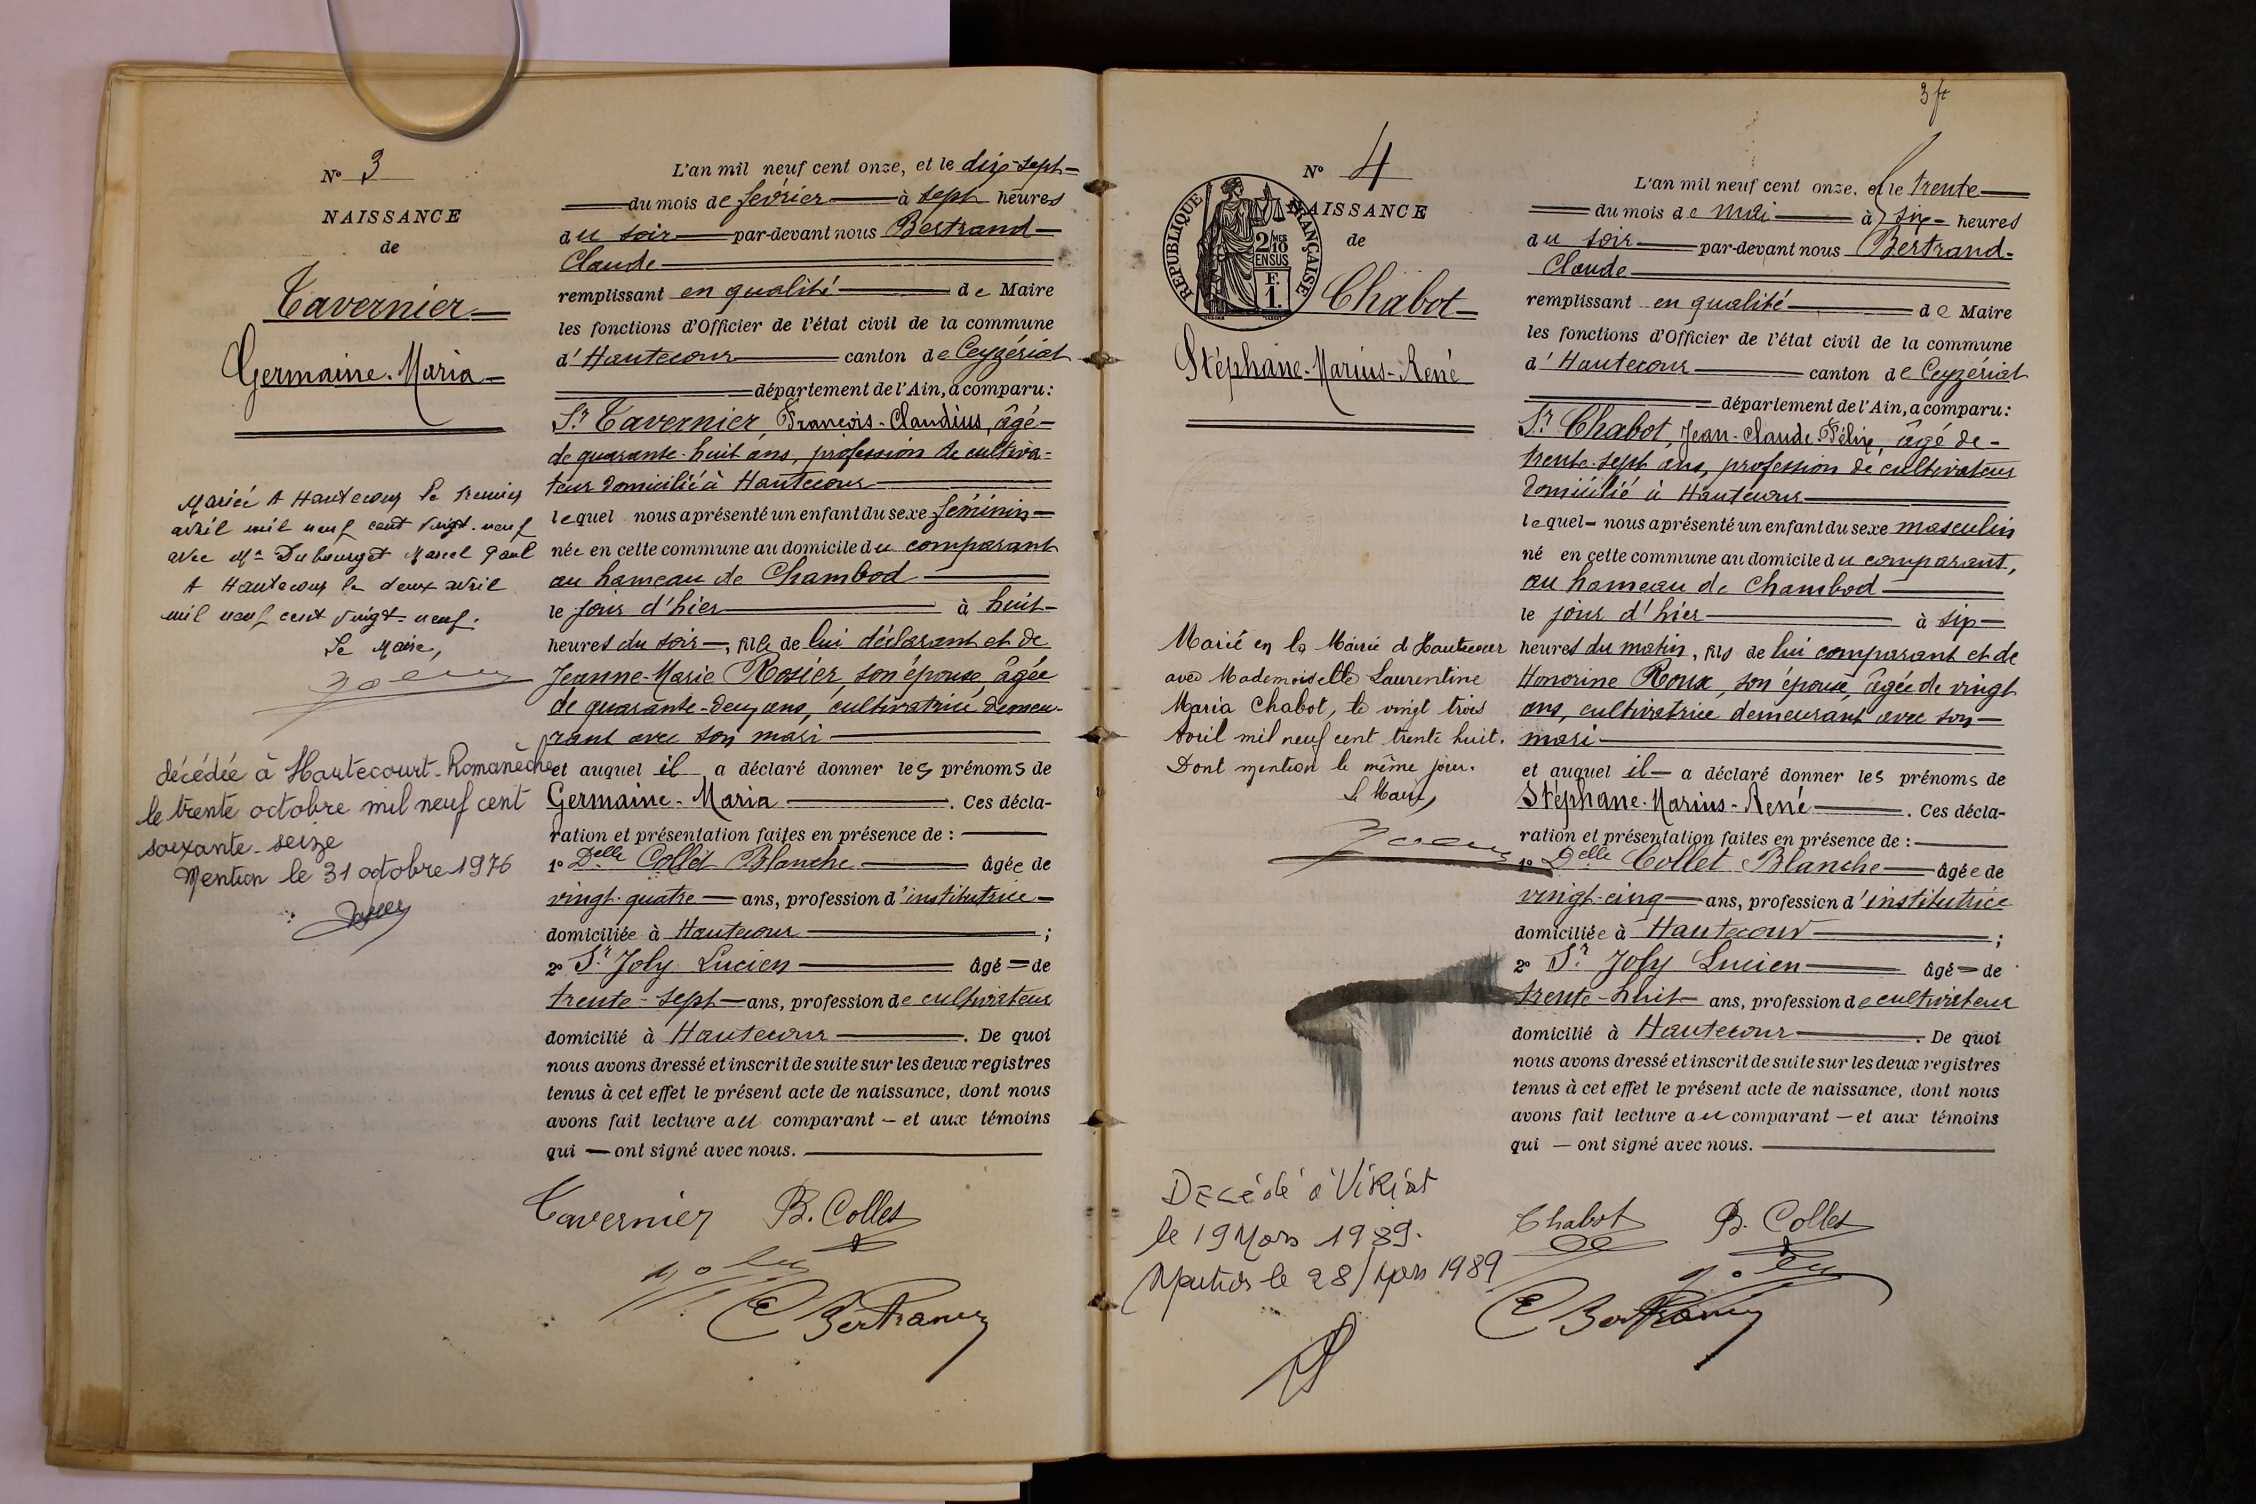 N° 3
NAISSANCE
de
Tavernier
Germaine-Maria
Mariée A Hautecour le premier
avril mil neuf cent vingt-neuf
avec Mr Dubourget Marcel Paul
A Hautecour le deux avril
mil neuf cent vingt-neuf.
Le Maire,
décédée à Hautecourt-Romanèche
le trente octobre mil neuf cent
soixante-seize
Mention le 31 octobre 1976
L'an mil neuf cent onze, et le dix-sept
du mois de février à sept heures
du soir par-devant nous Bertrand
Claude
remplissant en qualité de Maire
les fonctions d'Officier de l'état civil de la commune
d'Hautecour canton de Ceyzériat
département de l'Ain, a comparu:
Sr Tavernier François-Claudius, âgé
de quarante-huit ans, profession de cultiva-
teur domicilié à Hautecour
lequel nous a présenté un enfant du sexe féminin
née en cette commune au domicile du comparant
au hameau de Chambod
le jour d'hier à huit
heures du soir, fille de lui déclarant et de
Jeanne-Marie Rosier, son épouse âgée
de quarante-deux ans, cultivatrice demeu-
rant avec son mari
et auquel il a déclaré donner les prénoms de
Germaine-Maria. Ces décla-
ration et présentation faites en présence de :
1° Delle Collet Blanche âgée de
vingt-quatre ans, profession d'institutrice
domiciliée à Hautecour ;
2° Sr Joly Lucien âgé de
trente-sept ans, profession de cultivateur
domicilié à Hautecour. De quoi
nous avons dressé et inscrit de suite sur les deux registres
tenus à cet effet le présent acte de naissance, dont nous
avons fait lecture au comparant — et aux témoins
qui — ont signé avec nous.
Tavernier B. Collet
Joly
C Bertrand
3 ft
N° 4
NAISSANCE
de
RÉPUBLIQUE FRANÇAISE
2/10 MES
EN SUS
F.
1.
Chabot
Stéphane-Marius-René
Marié en la Mairie d'Hautecour
avec Mademoiselle Laurentine
Maria Chabot, le vingt trois
Avril mil neuf cent trente huit.
Dont mention le même jour.
Le Maire,
Décédé à Viriat
le 19 Mars 1989.
Mention le 28 Mars 1989
L'an mil neuf cent onze, et le trente
du mois de mai à six heures
du soir par-devant nous Bertrand
Claude
remplissant en qualité de Maire
les fonctions d'Officier de l'état civil de la commune
d'Hautecour canton de Ceyzériat
département de l'Ain, a comparu:
Sr Chabot, Jean-Claude-Félix, âgé de
trente-sept ans, profession de cultivateur
domicilié à Hautecour
lequel nous a présenté un enfant du sexe masculin
né en cette commune au domicile du comparant,
au hameau de Chambod
le jour d'hier à six
heures du matin, fils de lui comparant et de
Honorine Roux, son épouse, âgée de vingt
ans, cultivatrice demeurant avec son
mari
et auquel il a déclaré donner les prénoms de
Stéphane-Marius-René. Ces décla-
ration et présentation faites en présence de :
1° Delle Collet Blanche âgée de
vingt-cinq ans, profession d'institutrice
domiciliée à Hautecour ;
2° Sr Joly Lucien âgé de
trente-huit ans, profession de cultivateur
domicilié à Hautecour. De quoi
nous avons dressé et inscrit de suite sur les deux registres
tenus à cet effet le présent acte de naissance, dont nous
avons fait lecture au comparant — et aux témoins
qui — ont signé avec nous.
Chabot B. Collet
Joly
C Bertrand